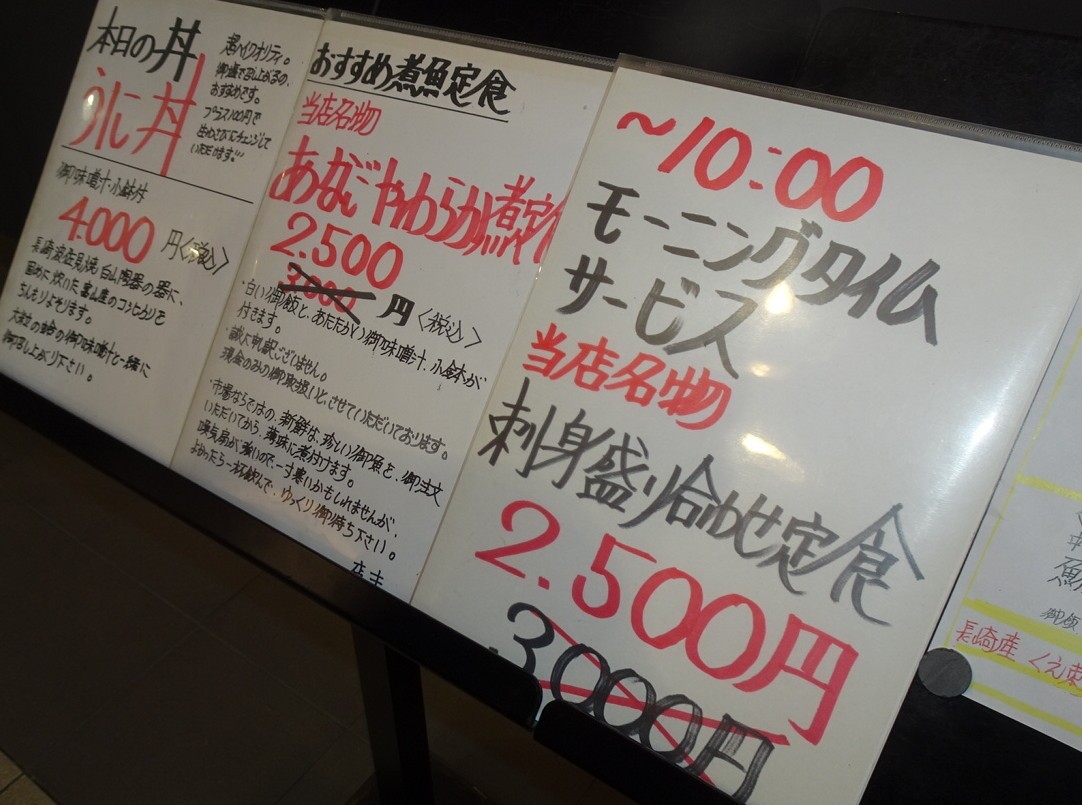 本日の丼
うに丼
超ハイクオリティ。
御塩で召し上がるの、
おすすめです。
プラス100円で
生わさびにチェンジして
いただけます。
御味噌汁・小鉢付
4000円〈税込〉
長崎波佐見焼 白山陶器の器に、
固めに炊いた富山産のコシヒカリを
ちんもりよそります。
大粒の蛤の御味噌汁と一緒に
御召し上がり下さい。
おすすめ煮魚定食
当店名物
あなごやわらか煮定食
2.500
3.000
円〈税込〉
・白い御飯と、あたたかい御味噌汁、小鉢が
付きます。
・誠に申し訳ございません。
現金のみの御取扱いとさせていただいております。
・市場ならではの、新鮮な、珍しい御魚を、御注文
いただいてから、薄味に煮付けます。
・換気扇が、強いので、一寸寒いかもしれませんが、
よかったら一杯飲んで、ゆっくり御待ち下さい。
店主
～10:00
モーニングタイム
サービス
当店名物
刺身盛り合わせ定食
2.500円
3.000円
魚
御飯
長崎産 くえ